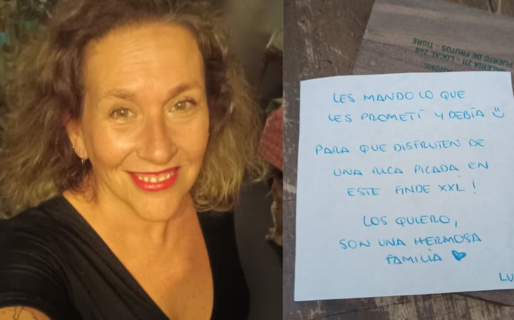 PUERTO DE FRUTOS - TIGRE
LES MANDO LO QUE
LES PROMETÍ Y DEBÍA
PARA QUE DISFRUTEN DE
UNA RICA PICADA EN
ESTE FINDE XXL!
LOS QUIERO,
SON UNA HERMOSA
FAMILIA
LU